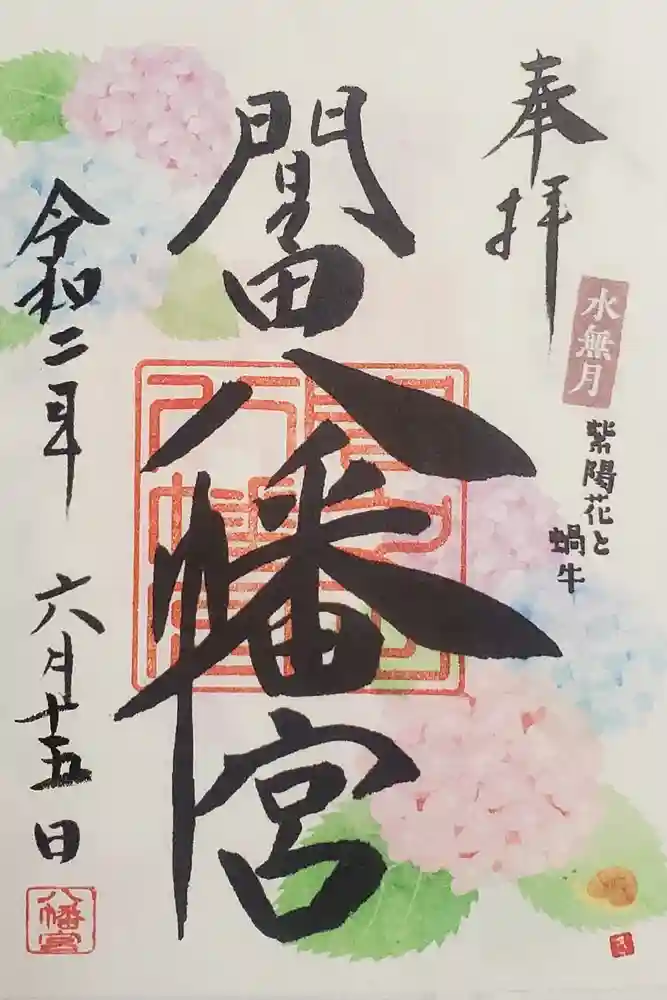 奉拝
水無月
紫陽花と
蝸牛
間々田八幡宮
令和二年
六月十五日
八幡宮